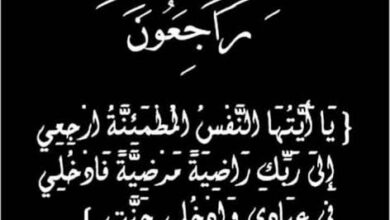 رَاجِعُونَ
{ يَا أَيَّتُهَا النَّفْسُ الْمُطْمَئِنَّةُ ارْجِعِي
إِلَىٰ رَبِّكِ رَاضِيَةً مَرْضِيَّةً فَادْخُلِي
فِي عِبَادِي وَادْخُلِي جَنَّتِي }